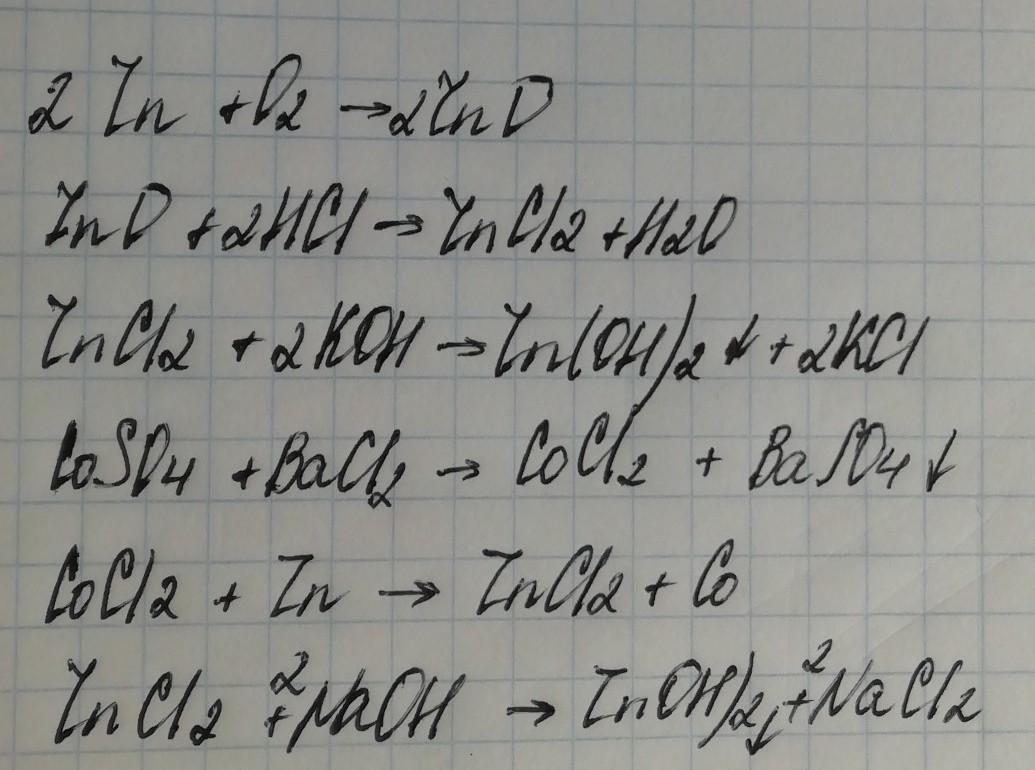 2 Zn + O2 → 2ZnO
ZnO + 2HCl → ZnCl2 + H2O
ZnCl2 + 2KOH → Zn(OH)2 ↓ + 2KCl
CoSO4 + BaCl2 → CoCl2 + BaSO4 ↓
CoCl2 + Zn → ZnCl2 + Co
ZnCl2 + 2NaOH → ZnOH)2↓ + 2NaCl2